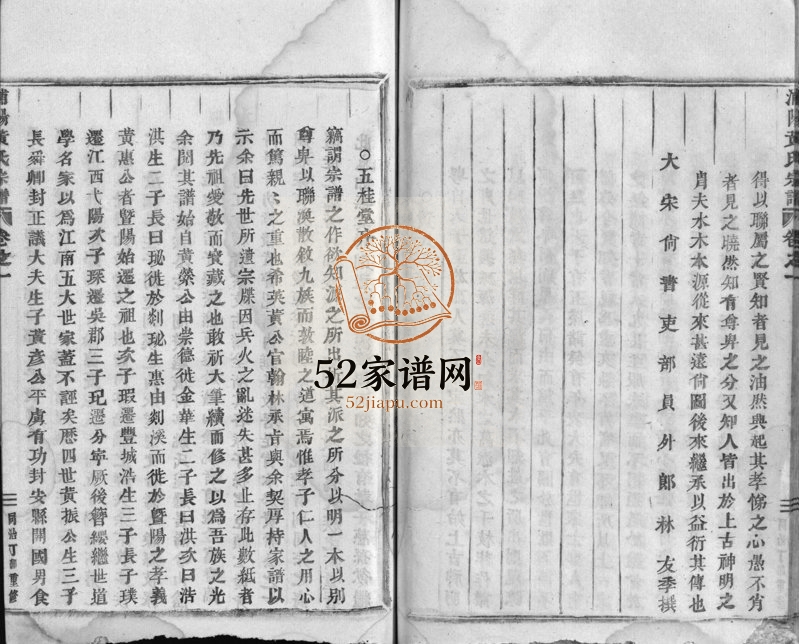 浦陽黃氏宗譜 卷之一
得以聯屬之賢知者見之油然興起其孝悌之心愚不肖
者見之曉然知有尊卑之分又知人皆出於上古神明之
胄夫水木本源從來甚遠尚圖後來繼承以益衍其傳也
大宋尚書吏部員外郎林友季撰
同治丁卯重修
○五桂堂
竊謂宗譜之作欲知源之所出
其派之所分以明一木以別
尊卑以聯渙散敘九族而敦睦之道寓焉惟孝子仁人之用心
而篤親〻之重也希英黃公官翰林承旨與余契厚持家譜以
示余曰先世所遺宗牒因兵火之亂迷失甚多止存此數紙者
乃先祖愛敬而寶藏之也敢祈大筆續而修之以為吾族之光
余閱其譜始自黃榮公由崇德徙金華生二子長曰洪次曰浩
洪生二子長曰琊徙於剡珌生惠由剡溪而徙於暨陽之孝義
黃惠公者暨陽始遷之祖也次子瑕遷豐城浩生三子長子璞
遷江西弋陽次子琛遷吳郡三子玘遷分寧厥後簪纓繼世道
學名家以為江南五大世家蓋不誣矣歷四世黃振公生三子
長舜卿封正議大夫生子黃彥公平虜有功封安縣開國男食
浦陽黃氏宗譜 卷之一
同治丁卯重修
52家谱网
52jiapu.com